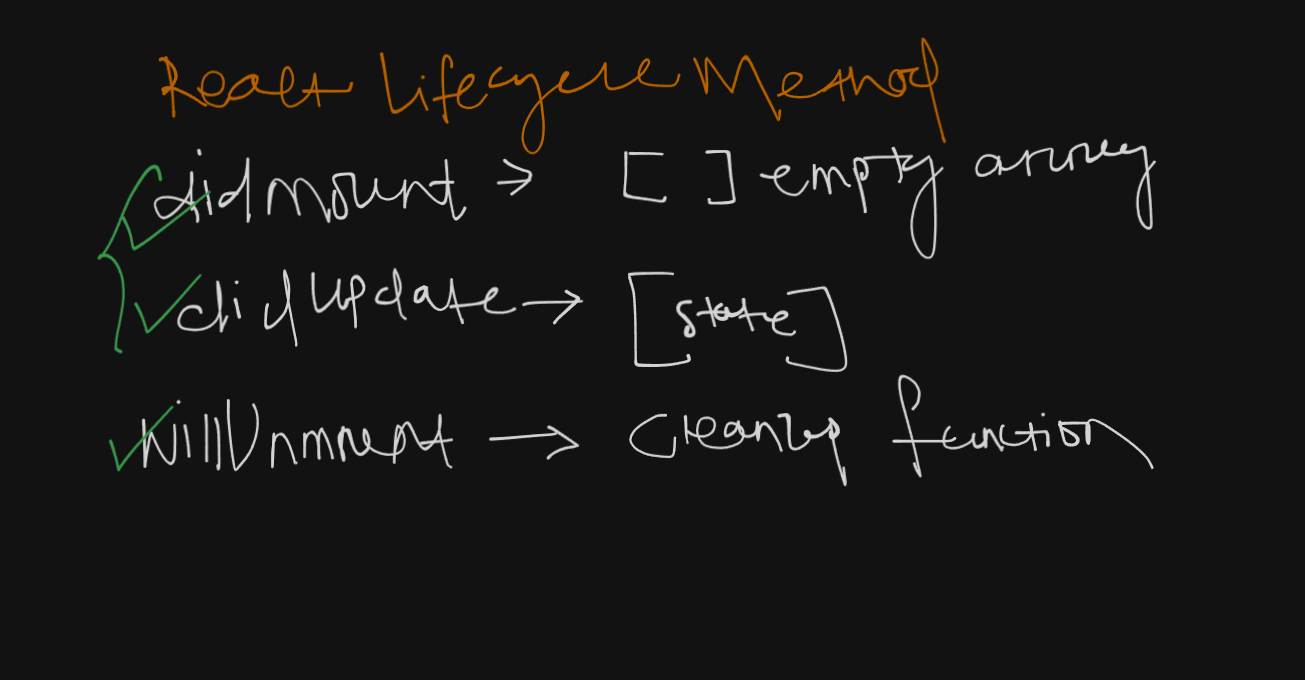 React Lifecycle Method
didmount → [ ] empty array
didUpdate → [state]
WillUnmount → Cleanup function